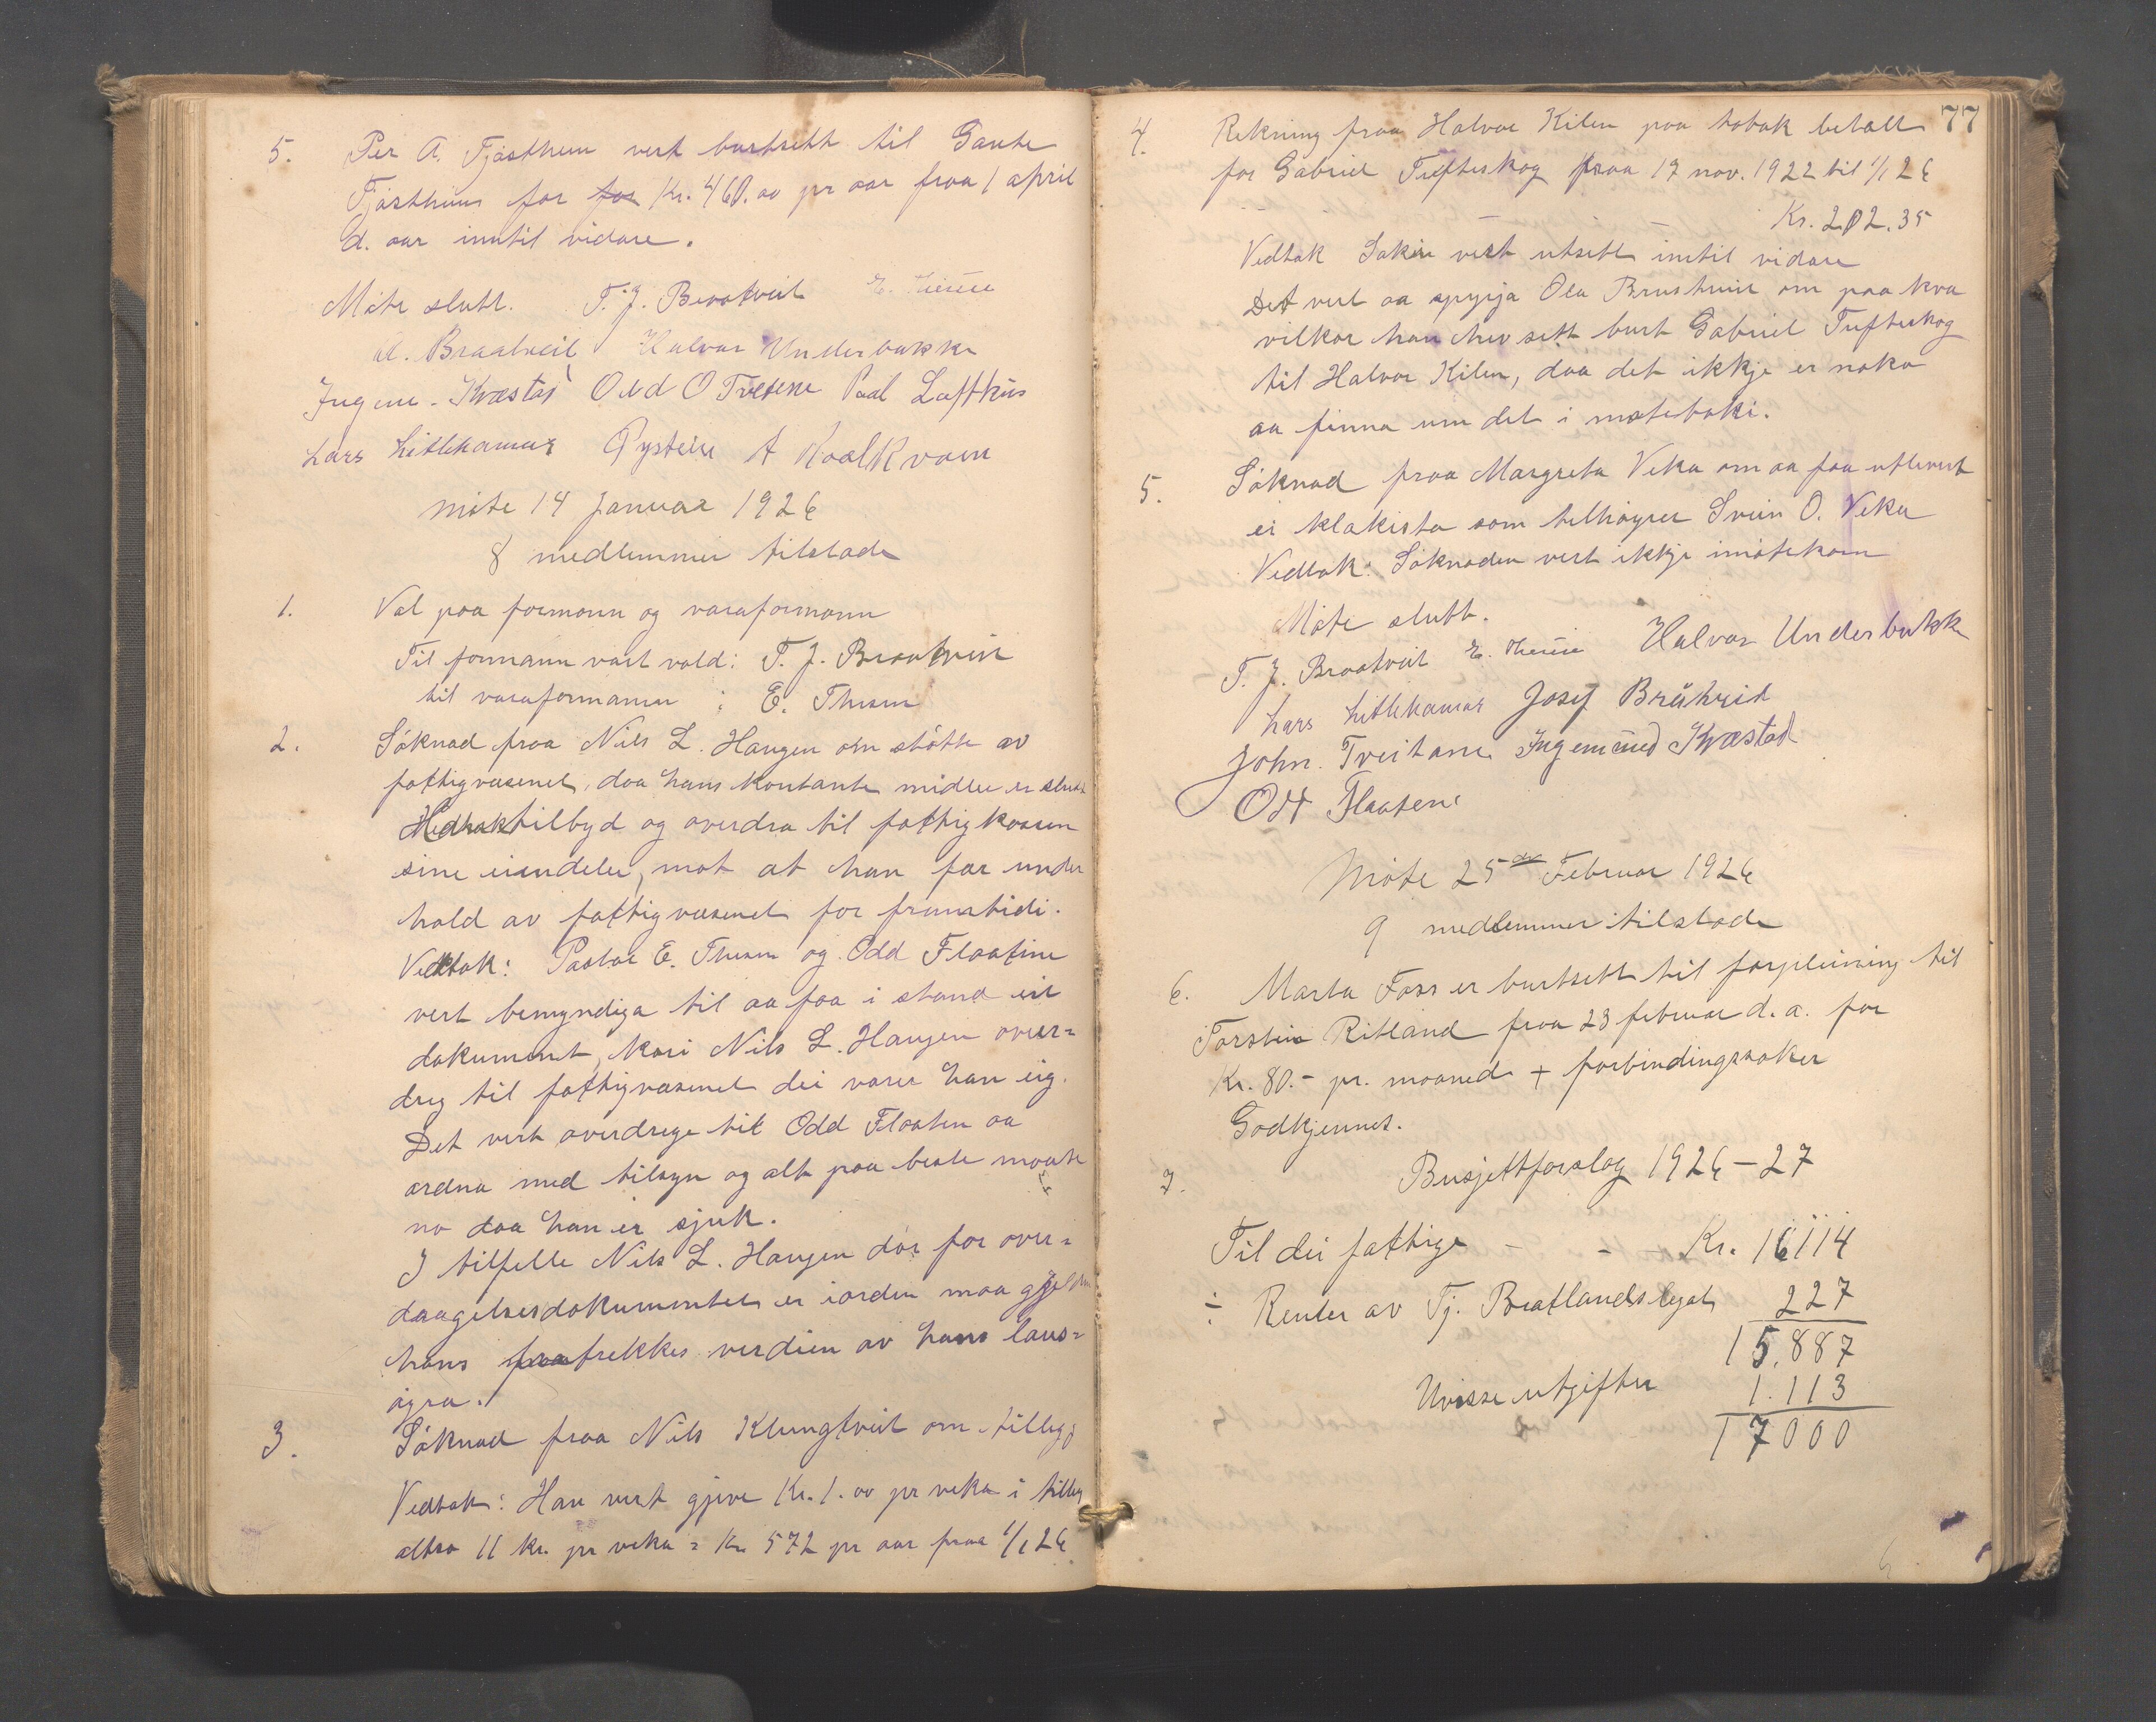 5. Per A. Fjösthun vert burtsett til Gaute
Fjösthuus for for Kr. 460.00 pr aar fraa 1 april
d. aar inntil vidare.
Möte slutt. T. J. Brootveit
A. Braatveit Halvar Underbakke
Ingem. Kvæstad Odd O Tveitene Paal Lofthus
Lars Litlehamar Øystein A Kaalkvam
Möte 14 Januar 1926
8 medlemmer tilstade
1. Val paa formann og varaformann
Til formann vart vald: T. J. Brootveit
til varaformann : E. Thuen
2. Söknad fraa Nils L. Haugen om stötte av
fattigvæsenet, daa hans kontante midler er slutt
Han tilbyd og overdra til fattigkassen
sine eiendeler, mot at han faar under
hold av fattigvæsenet for framtidi.
Vedtak: Pastor E. Thuen og Odd Flaatine
vert bemyndiga til aa faa i stand eit
dokument, kori Nils L. Haugen over=
dreg til fattigvæsenet dei varer han eig.
Det vert overdrege til Odd Flaaten aa
ordna med tilsyn og alt paa beste maate
no daa han er sjuk.
I tilfelle Nils L. Haugen dör for over=
dragelsesdokumentet er iorden maa gjelden
hans fra trekkes verdien av hans laus=
øyra.
3. Söknad fraa Nils Klungtveit om tillegg
Vedtak: Han vert gjeve Kr. 1.00 pr veka i tilleg
altso 11 kr. pr veka = Kr 572 pr aar fraa 1/1 26
77
4. Rekning fraa Halvor Kilen paa tobak betalt
for Gabriel Tufteskog fraa 17 nov. 1922 til 1/1 26
Kr. 202.35
Vedtak Saken vert utsett inntil vidare
Det vert aa spyrja Ola Brushuus om paa kva
vilkor han hev sett burt Gabriel Tufteskog
til Halvor Kilen, daa det ikkje er noko
aa finna um det i møteboki.
5. Söknad fraa Margreta Veka om aa faa utlevert
ei klakista som tilhöyrer Svein O. Veka
Vedtak: Söknaden vert ikkje imötekom
Möte slutt.
T. J. Brootveit E. Thuen Halvar Underbakk
Lars Litlehamar Josef Bråtveit
John. Tveitane Ingemund Kvæstad
Odd Flaatene
Möte 25de Februar 1926
9 medlemmer tilstade
6. Marta Foss er burtsett til forpleining til
Torstein Ritland fraa 23 februar d. a. for
Kr. 80.- pr. maaned + forbindingssaker
Godkjennes.
7. Busjettforslag 1926-27
Til dei fattige - - Kr. 16114
÷ Renter av Tj. Bratlandslegat 227
15.887
Uvisse utgifter 1.113
17000